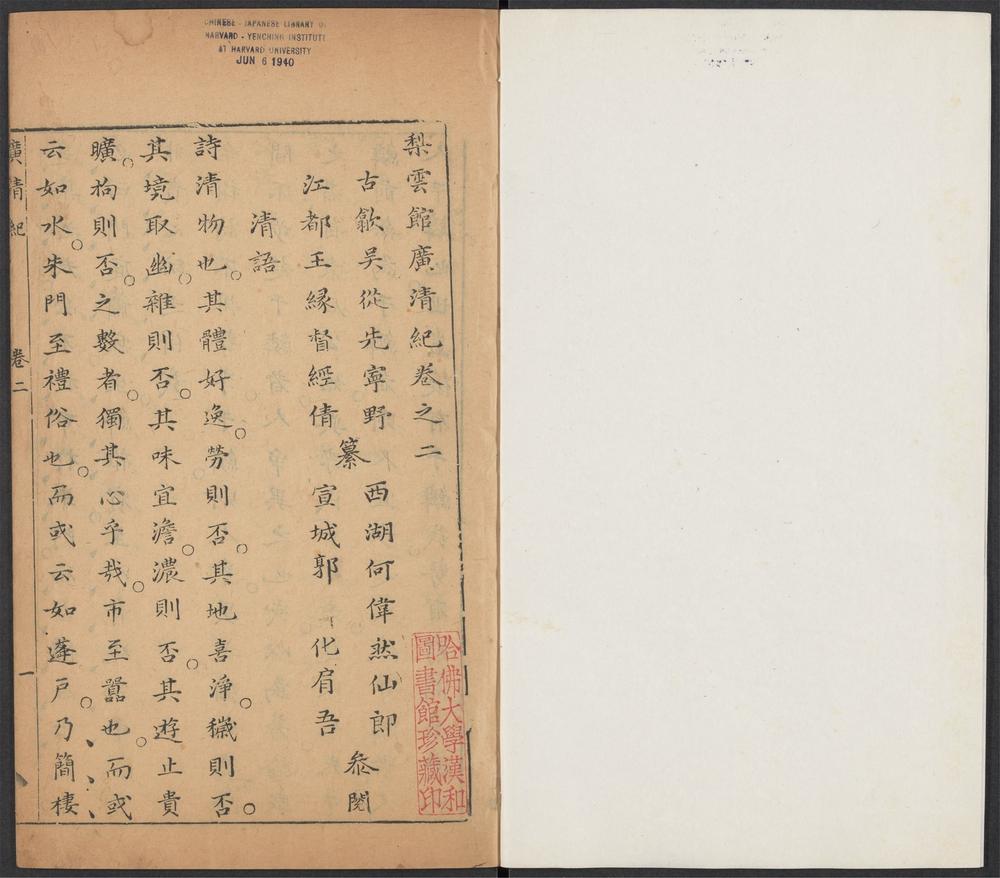 CHINESE - JAPANESE LIBRARY OF
HARVARD - YENCHING INSTITUTE
AT HARVARD UNIVERSITY
JUN 6 1940
梨雲館廣清紀卷之二
古歙吳從先寧野
西湖何偉然仙郎
江都王緣督經倩
纂
宣城郭化肩吾
叅閱
清語
詩清物也。其體好逸。勞則否。其地喜淨。穢則否。
其境取幽。雜則否。其味宜澹。濃則否。其遊止貴
曠。拘則否。之數者。獨其心乎哉。市至囂也。而或
云如水。朱門至禮俗也。而或云如蓬戶。乃簡棲
廣清紀
卷二
一
哈佛大學漢和
圖書館珍藏印